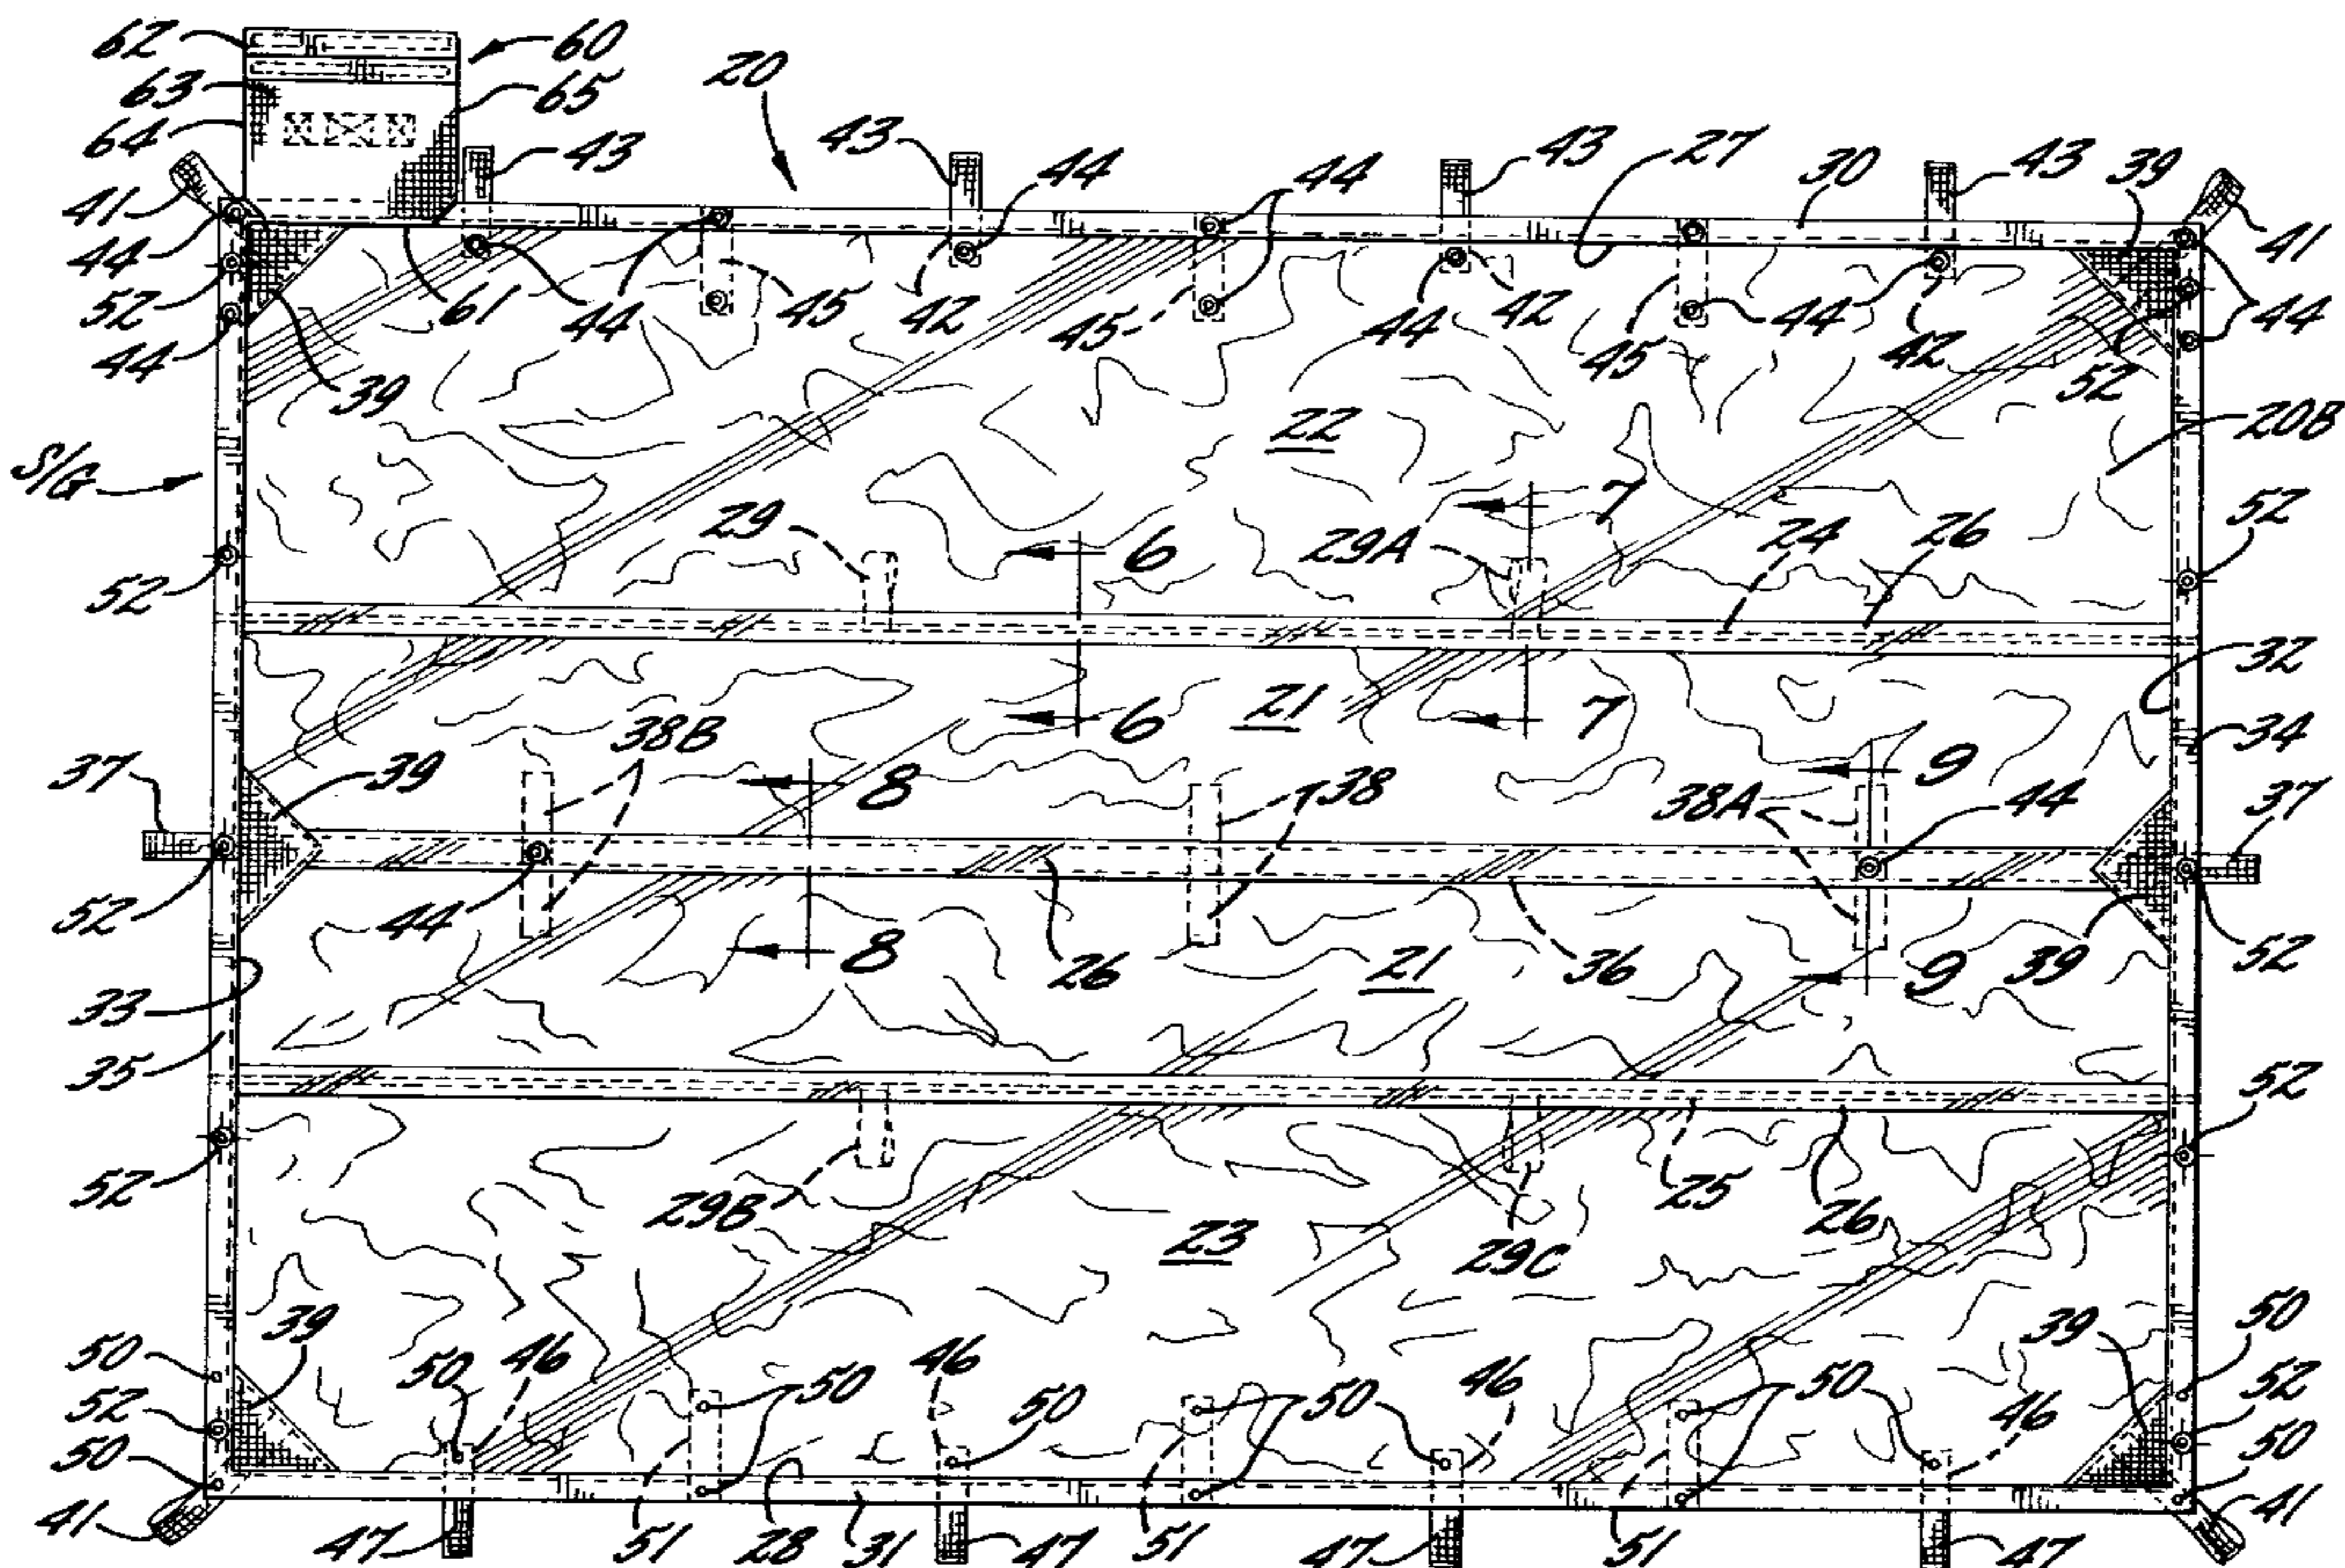 62 60 20
63 65
64 43 43 44 44 43 27 30 43 39
41 41
44
52 61 44 45 42 45 44 42 45 44 42 52 44
44 39
22 20B
S/G
29 6 29A 7 24 26 52
52
32
21
6 7
38B 34
37 39 8 38 38A 9 44 37
52 44 8 26 21 36 9 39 52
33
35
52
52 29B 25 26
23 29C
39 39 50
50 50 46 50 46 50 50 46 50 46 52
52
50 50
41 47 51 28 31 47 51 47 51 47 41